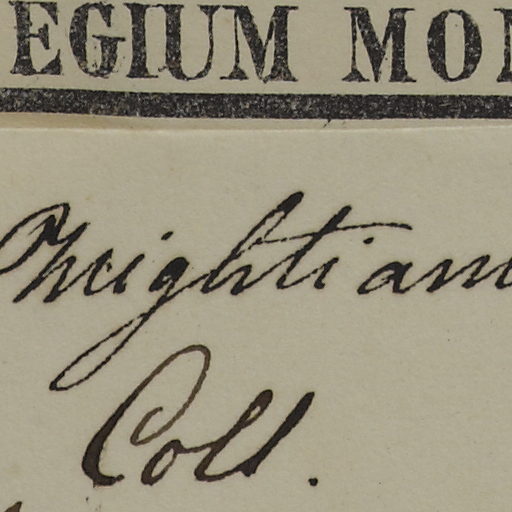 EGIUM MO
Wrightian
Coll.